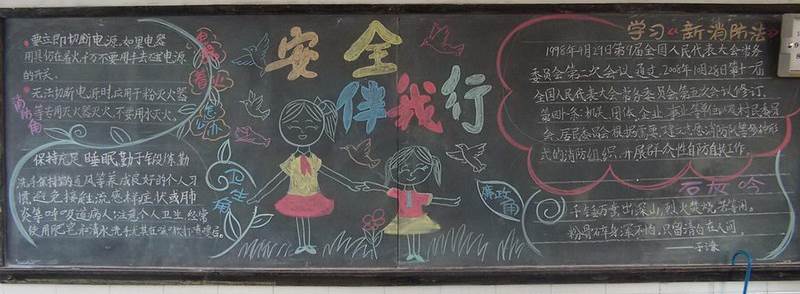 要立即切断电源，如果电器
用具仍在着火千万不要用手去碰电源
的开关。
无法切断电源时应用干粉灭火器
等专用灭火器灭火，不要用水灭火。
电器着火怎么办
消防角
保持充足睡眠勤于锻炼勤
洗手保持室内通风等养成良好的个人习
惯避免接触流感样症状或肺
炎等呼吸道病人注意个人卫生经常
使用肥皂和清水洗手尤其在咳
卫生角
安全
伴我行
廉政角
学习《新消防法》
1998年4月29日第九届全国人民代表大会常务
委员会第二次会议通过，2008年10月28日第十一届
全国人民代表大会常务委员会第五次会议修订，
第四十条:机关、团体、企业、事业等单位以及村民委员
会、居民委员会根据需要，建立志愿消防队等多种形
式的消防组织，开展群众性自防自救工作。
石灰吟
千锤万凿出深山，烈火焚烧若等闲。
粉骨碎身浑不怕，只留清白在人间。
—于谦